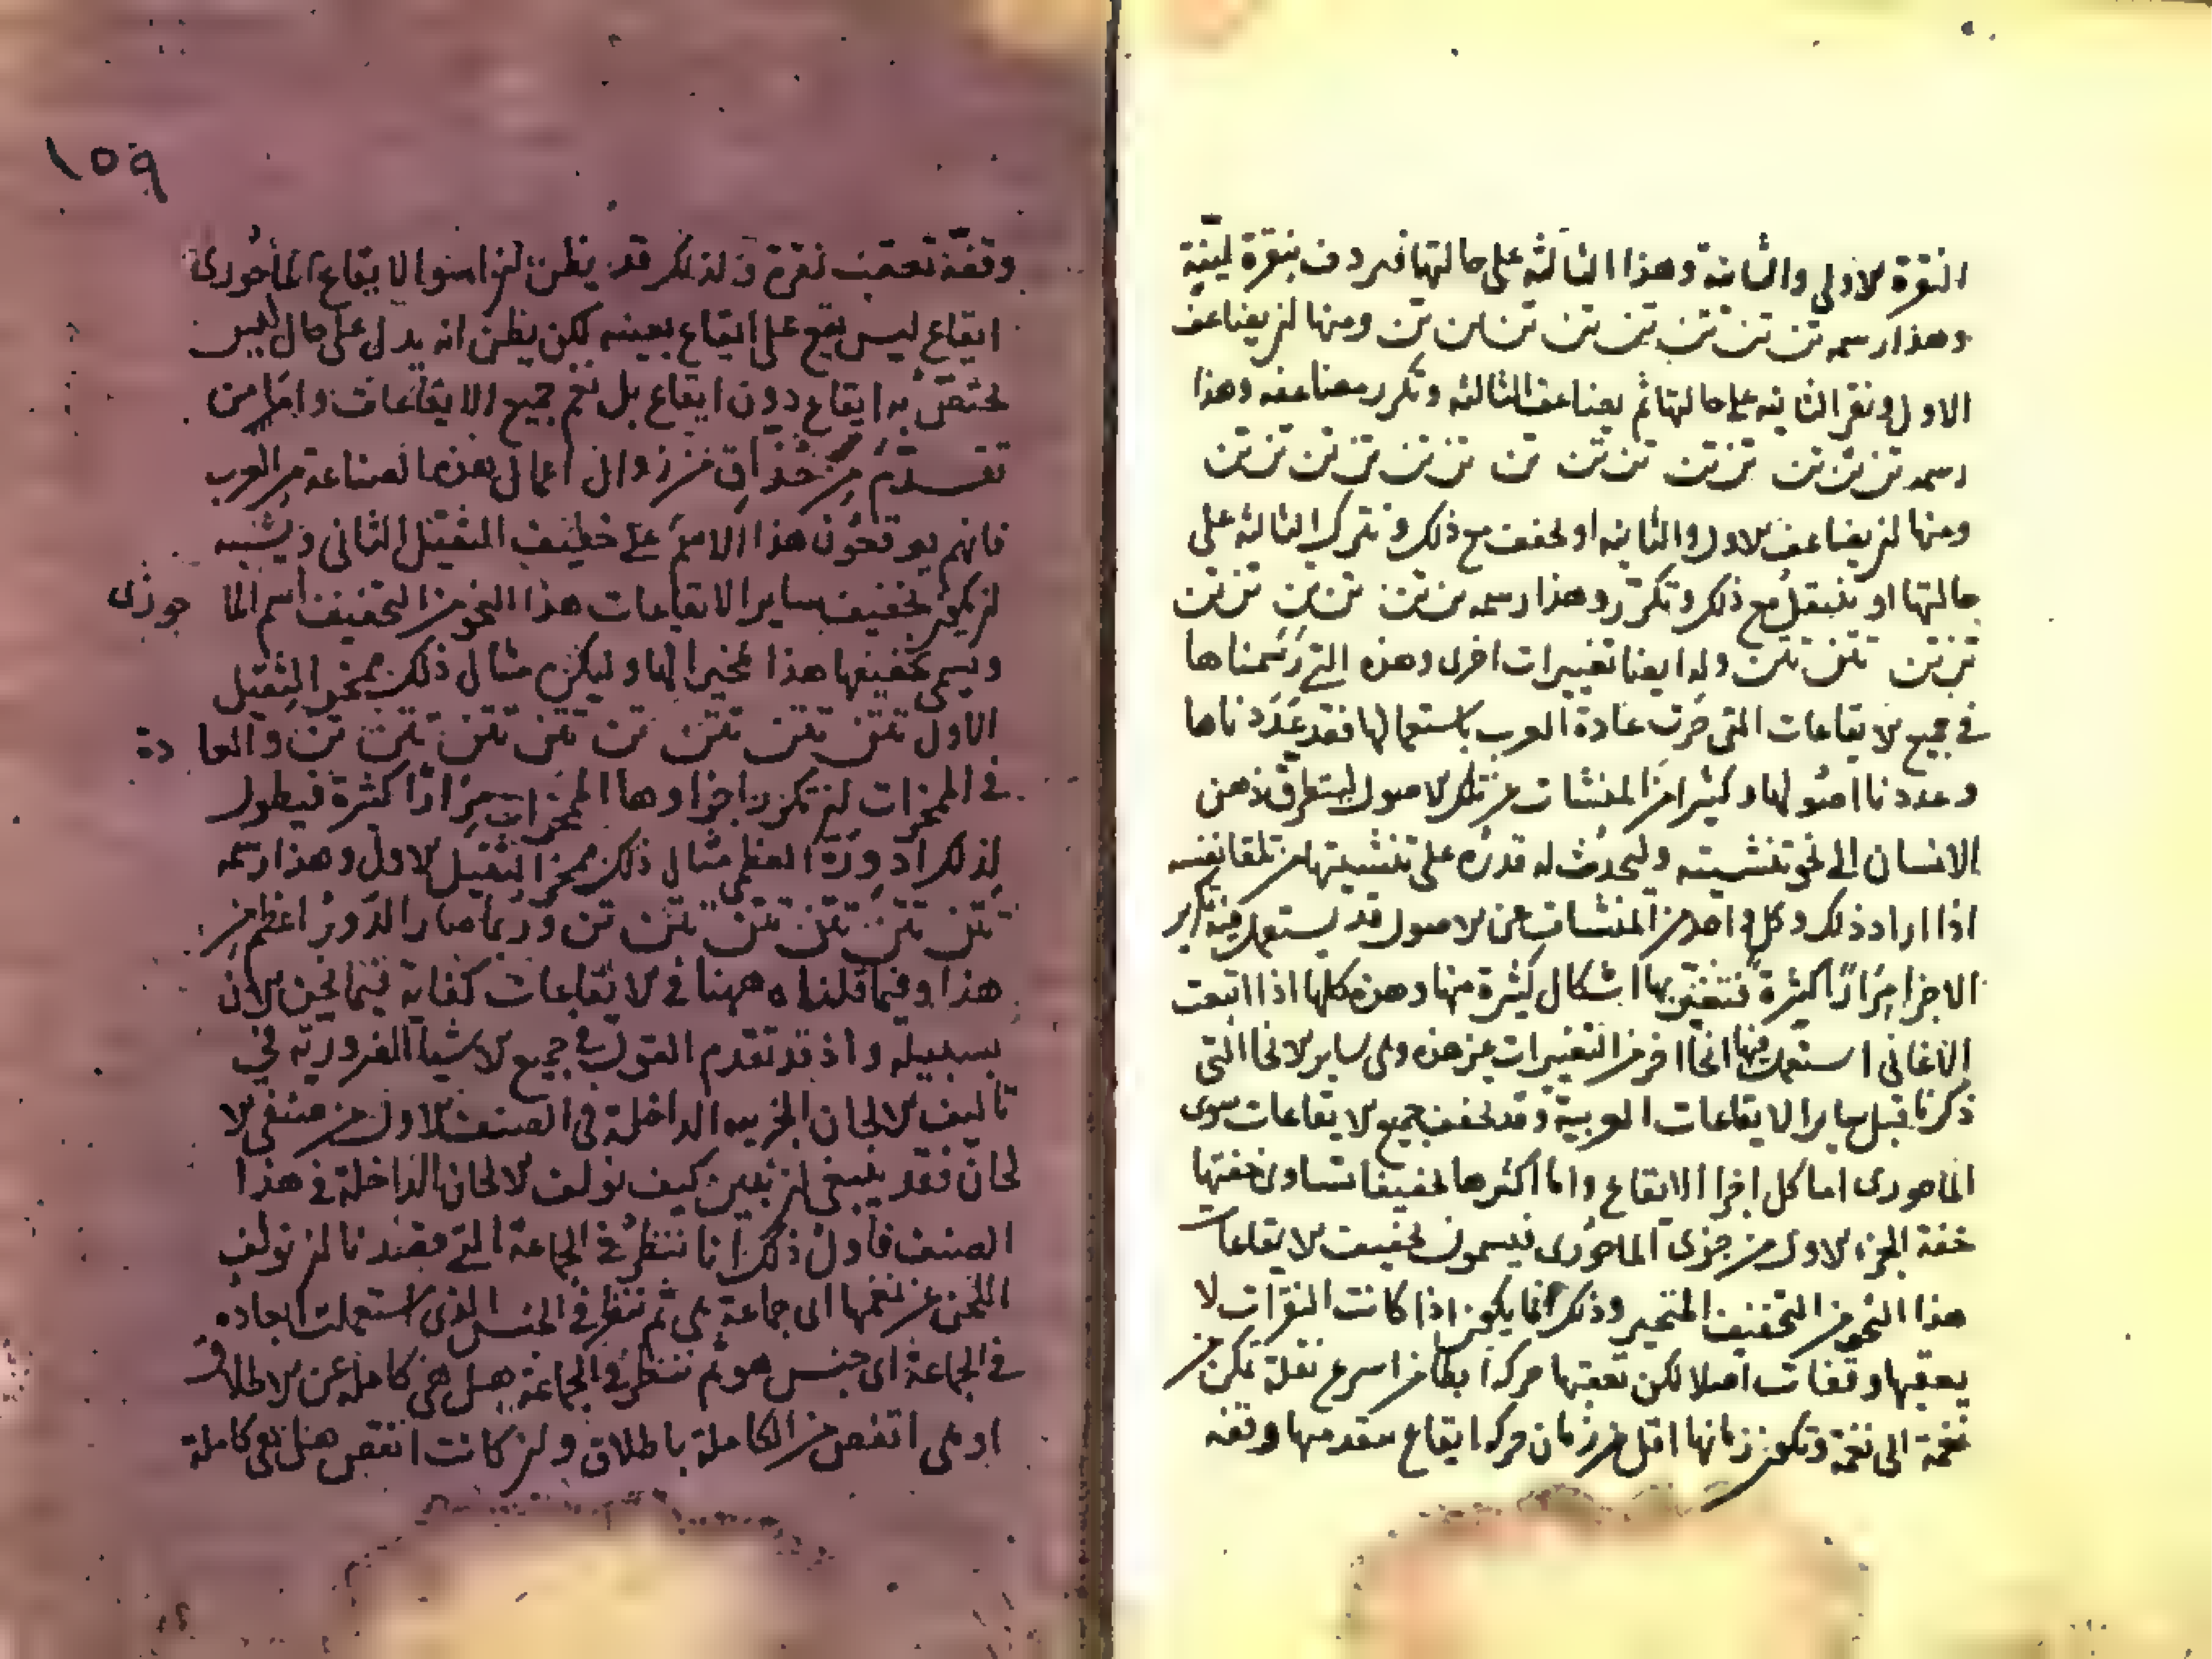 النقرة الاولى والثانية وهذا الثالثة على حالتها فيردف بنقرة لينة
وهذا رسمه تن تن تن تن تن تن تن تن تن ومنها ان يضاعف
الاولى ونقر الثانية على حالتها ثم يضاعف الثالثة وتكرر مضاعفه وهذا
رسمه تن تن تن تن تن تن تن تن تن تن تن تن تن تن تن
ومنها ان يضاعف الاول والثانيه او تخفف مع ذلك وتترك الثالثة على
حالتها او تثقل مع ذلك وتكرر وهذا رسمه تن تن تن تن تن تن
تن تن تتن تتن وله ايضا تغييرات اخرى وهذه التي رسمناها
في جميع الايقاعات التي جرت عادة العرب باستعمالها فقد عددناها
وعددنا اصولها وكثيرا من المنشات عن تلك الاصول ليتطرق ذهن
الانسان الى نحو تنشيته وليحدث له قدرة على تنشيتها من تلقا نفسه
اذا اراد ذلك وكل واحد من المنشات عن الاصول قد يستعمل فيه تكرير
الاجزا مرارا كثيرة فتتغير بها اشكال كثيرة منها وهذه كلها اذا اتبعت
الاغاني استعمل فيها انحا اخر من التغييرات غير هذه وهي ساير الانحا التي
ذكرنا قبل ساير الايقاعات العربية وقد تخفف جميع الايقاعات سوى
الماخورى اما كل اجزا الايقاع واما اكثرها تخفيفا تساوى خفتها
خفة الجزء الاول من جزى الماخورى فيسمون تخفيف الايقاعات
هذا النحو من التخفيف المتخير وذلك انما يكون اذا كانت النقرات لا
يعقبها وقفات اصلا لكن تعقبها حركة ابطا من اسرع نقلة تكون من
نغمة الى نغمة وتكون زمانها اقل من زمان حركة ايقاع متقدمها وقفه
١٥٩
وقفة تعقب نقرة ولذلك قد يظن ان اسم الايقاع الماخورى
ايقاع ليس يقع على ايقاع بعينه لكن يظن انه يدل على حال ليس
تختص به ايقاع دون ايقاع بل تعم جميع الايقاعات واما من
تقدم من حذاق مزاولى اعمال هذه الصناعة من العرب
فانهم يوقعون هذا الاسم على خفيف الثقيل الثانى ويشبه
ان يكون تخفيف ساير الايقاعات هذا النحو من التخفيف اسم الما خورى
ويسمى تخفيفها هذا تمخيرا لها وليكن مثال ذلك ممخر الثقيل
الاول تتن تتن تتن تتن تن تتن تتن تتن تن والعا دة
في الممخرات ان تكرر اجزاوها الممخرات مرارا كثيرة فيطول
لذلك ادوره العظمى مثال ذلك ممخر الثقيل الاول وهذا رسمه
تتن تتن تتن تتن تتن تتن تن وربما صار الدور اعظم من
هذا وفيما قلناه ههنا في الايقاعات كفاية فيما نحن الان
بسبيله واذ قد تقدم القول في جميع الاشيا الضرورية في
تاليف الالحان الجزييه الداخلة في الصنف الاول من صنفي الا
لحان فقد ينبغي ان نبين كيف نولف الالحان الداخلة في هذا
الصنف فاول ذلك انا ننظر في الجماعة التي قصدنا ان نولف
اللحن عن نغمها اى جماعة هي ثم ننظر في الجنس الذى استعملت ابعاده
في الجماعة اى جنس هو ثم ننظر في الجماعة هل هي كاملة على الاطلاق
او هي انقص من الكاملة باطلاق وان كانت انقص هل هي كاملة